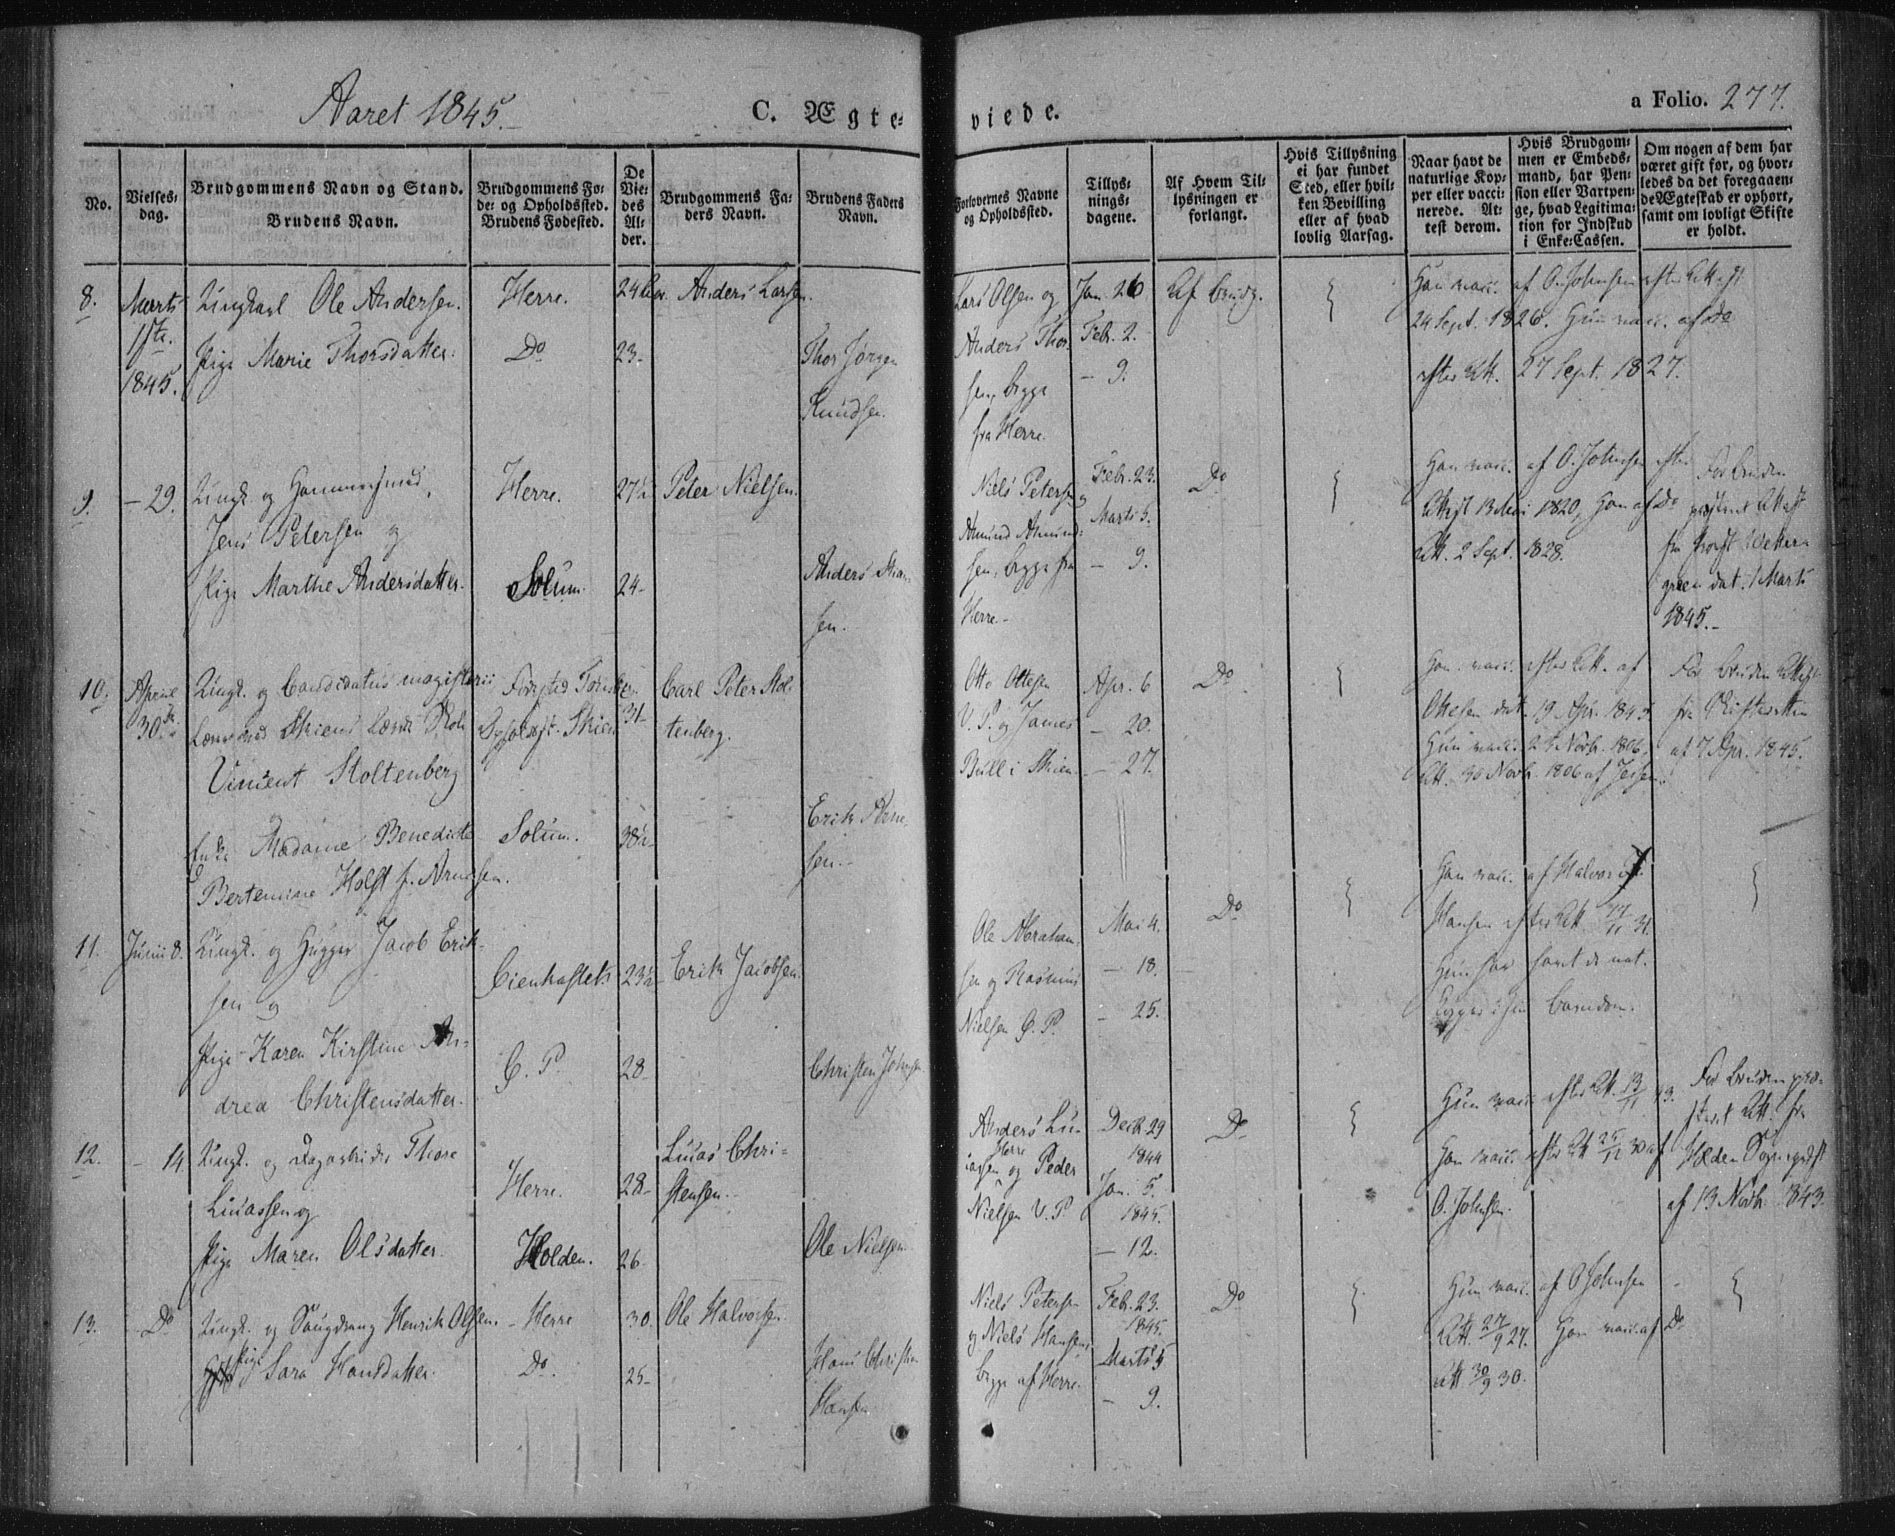 Aaret 1845.
C. Ægteviede.
a Folio. 277.
No.
Vielsesdag.
Brudgommens Navn og Stand.
Brudens Navn.
Brudgommens Føde- og Opholdssted.
Brudens Fødested.
De Viedes Alder.
Brudgommens Faders Navn.
Brudens Faders Navn.
Forlovernes Navne og Opholdssted.
Tillysningsdagene.
Af Hvem Tillysningen er forlangt.
Hvis Tillysning ei har fundet Sted, eller hvilken Bevilling eller af hvad lovlig Aarsag.
Naar havt de naturlige Kopper eller vaccinerede. Attest derom.
Hvis Brudgommen er Embedsmand, har Pension eller Vartpenge, hvad Legitimation for Indskud i Enke-Cassen.
Om nogen af dem har været gift før, og hvorledes da det foregaaende Ægteskab er ophørt, samt om lovligt Skifte er holdt.
8.
Marts 1ste 1845.
Ungkarl Ole Andersen.
Herre.
24
Anders Larsen.
Pige Marie Thorsdatter.
Do
23-
Thor Jørgen
Knudsen.
Lars Olsen og
Anders Thor-
sen, begge
fra Herre.
Jan. 26
Febr. 2.
- 9.
Af Brudg.
Han vacc. af O. Johnsen efter Attest
24 Sept. 1826. Hun vacc. af do
efter Att. 27 Sept. 1827.
9.
- 29.
Ungk. og Hammersmed,
Jens Petersen og
Herre.
27½
Peter Nielsen.
Pige Marthe Andersdatter.
Solum.
24-
Anders
sen.
Niels Petersen
Amund Amund-
sen, begge fra
Herre.-
Febr. 23.
Marts 5.
- 9.
Do
Han vacc. af O. Johnsen efter
Attest 13 Mai 1820, Hun af Do
Att. 2 Sept. 1828.
For Bruden
præsteret Attest
fra Provst
dat. 1 Marts
1845.-
10.
Aprile
30te
Ungk. og Candidatus magisterii
Vincent Stoltenberg
Fødested
Opholdst. Skien
31-
Carl Peter Stol-
tenberg.
Enke Madame Benedicte
Bertemine Holst f. Arnesen.
Solum.
38½
Erik Arne-
sen.-
Otto Ottesen
V. P. og James
Bull i Skien
Apr. 6
- 20.
- 27.
Do
Han vacc. efter Att. af
Ottesen dat. 19 Apr. 1845
Hun vacc. 24 Novb. 1806.
Att. 30 Novb. 1806 af
For Bruden Attest
fra Skifteretten
af 7 Apr. 1845.
11.
Junii 8.
Ungk. og Hugger Jacob Erik-
sen og
23½
Erik Jacobsen
Pige Karen Kirstine An-
drea Christensdatter.
G. P.
28-
Christen
Ole Abraham-
sen og Rasmus
Nielsen G. P.
Mai 4.
- 18.
- 25.
Do
Han vacc. af Halvor
Hansen efter Att. 17/11 31.
Hun har havt de nat.
Kopper i sin Barndom.
12.
- 14
Ungk. og Dagarbeider Thore
Lucassen og
Herre.
28-
Lucas Chri-
stensen.
Pige Maren Olsdatter.
Holden.
26
Ole Nielsen
Anders Lu-
Herre
cassen og Peder
Nielsen V. P.
Decb. 29
1844
Jan. 5.
1845.
- 12.
Do
Hun vacc. efter Att. 13/11 43.
Han vacc. efter Att 25/11 30 af
O. Johnsen.
For Bruden præ-
steret Att. fra
Holden Sognepræst
af 13 Novb. 1843.
13.
Do
Ungk. og Henrik Olsen.
- Herre
30.
Ole Halvorsen.
Pige Sara Hansdatter.
Do.
25-
Hans Christian
Hansen
Niels Petersen
og Niels Hansen,
begge af Herre.
Febr. 23.
1845.
Marts 5
- 9.
Do
Hun vacc. af O Johnsen
Att. 27/9 27. Han vacc. af Do
Att 30/9 30.